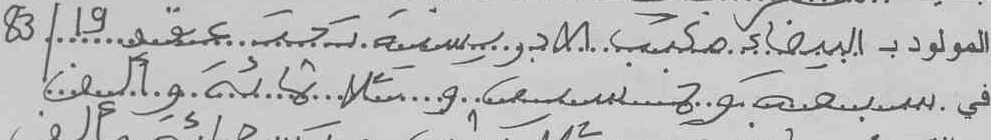 المولود بـ البيضاء مكتب الادريسية تحت عقد 19/83
في سبعة وخمسين و ثلاثمائة وألف